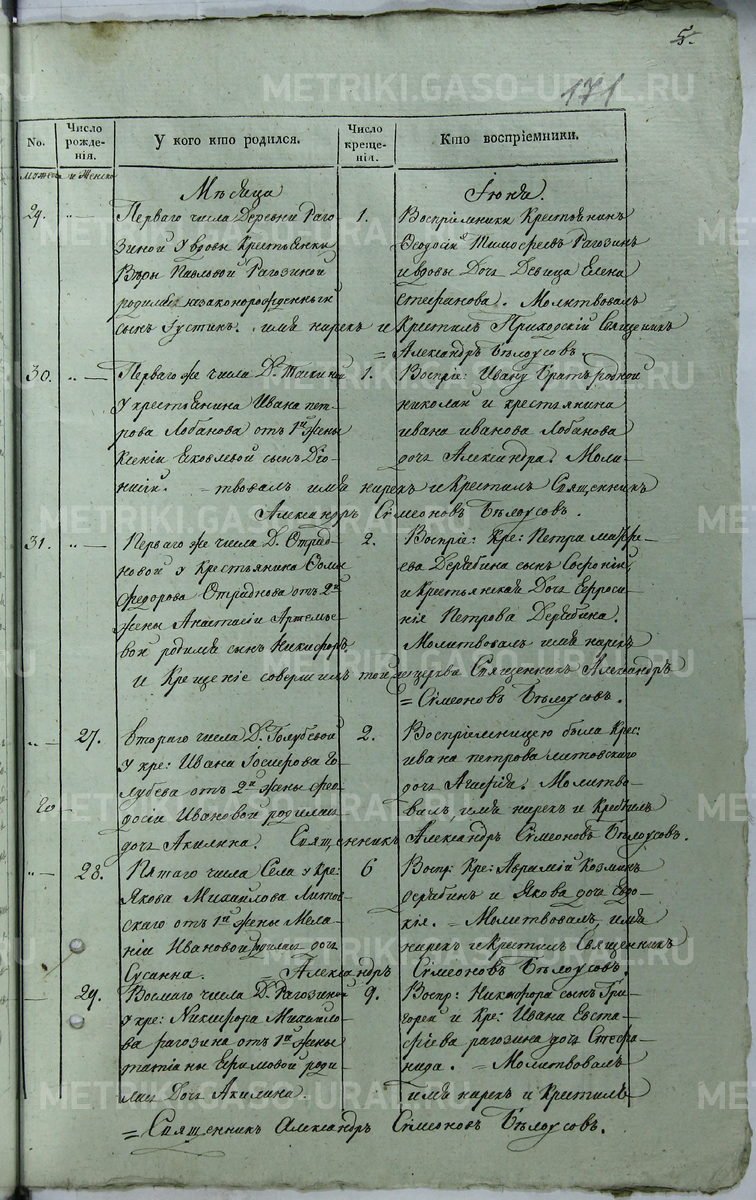 5.
171
No.
Число рожденія.
У кого кто родился.
Число крещенія.
Кто воспріемники.
мужеск и женск
Мѣсяца
Іюня.
29. 1.
Перваго числа Деревни Раго-
зиной у вдовы крестьянки
Вѣры Павловой Рагозиной
родился незаконорожденный
сынъ Іустинъ. имя нарекъ и
Воспріемники Крестьянинъ
Ѳеодосій Тимофеевъ Рагозинъ
и вдовы дочь Девица Елена
Стефанова. Молитвовалъ
Крестилъ Приходскій Священникъ
= Александръ Бѣлоусовъ.
30. 1.
Перваго же числа Д.
у крестьянина Ивана пет-
рова Лобанова отъ 1й жены
Ксеніи Яковлевой сынъ Діо-
нисій. = твовалъ имя нарекъ и Крестилъ Священникъ
Воспріе: Ивану братъ родной
николай и крестьянина
ивана иванова Лобанова
дочь Александра. Моли-
Александръ Сѵмеоновъ Бѣлоусовъ.
31. 2.
Перваго же числа Д. Отрад-
новой у Крестьянина Фомы
Федорова Отраднова отъ 2й
жены Анастасіи Артемье-
вой родился сынъ Никифоръ,
и Крещеніе совершилъ той же церкви Священникъ Александръ
Воспріе: Кре: Петра Матфе-
ева Дерябина сынъ Софроній,
и крестьянская Дочь Ефроси-
нія Петрова Дерябина.
Молитвовалъ имя нарекъ
= Сѵмеоновъ Бѣлоусовъ.
27. 2.
втораго числа Д. Голубевой
у кре: Ивана Іосифова Го-
лубева отъ 2й жены Фео-
досіи Ивановой родилась
дочь Акилина. Священникъ Александръ Сѵмеоновъ Бѣлоусовъ.
Воспріемницею была Крес:
ивана петрова литовскаго
дочь Агафія. Молитво-
валъ, имя нарекъ и Крестилъ
28. 6
Пятаго числа Села у Кре:
Якова Михайлова Литов-
скаго отъ 1й жены Мела-
ніи Ивановой родилась дочь
Сусанна. = Александръ
Воспр: Кре: Аврамій Козминъ
дерябинъ и Якова дочь Евдо-
кія. = Молитвовалъ, имя
нарекъ и Крестилъ Священникъ
Сѵмеоновъ Бѣлоусовъ.
29. 9.
Восмаго числа Д. Рагозиной
у кре: Никифора Михайло-
ва рагозина отъ 1й жены
татіаны Ефимовой роди-
лась Дочь Акилина.
Воспр: Никифора сынъ Гри-
горей и Кре: Ивана Евста-
фіева рагозина дочь Стефа-
нида. = Молитвовалъ
имя нарекъ и Крестилъ
= Священникъ Александръ Сѵмеоновъ Бѣлоусовъ.
METRIKI.GASO-URAL.RU